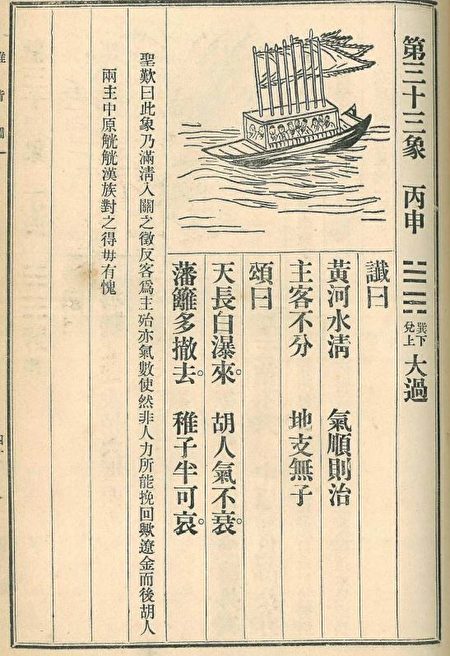 第三十三象 丙申 巽下兌上 大過
讖曰
黃河水清 氣順則治
主客不分 地支無子
頌曰
天長白瀑來。胡人氣不衰。
藩籬多撤去。稚子半可哀。
聖歎曰此象乃滿淸入關之徵反客爲主殆亦氣數使然非人力所能挽回歟遼金而後胡人
兩主中原觥觥漢族對之得毋有愧